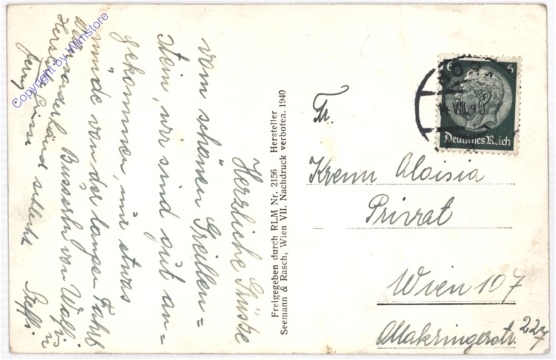 Herzliche Grüße
vom schönen Greillen=
stein, wir sind gut an=
gekommen nur etwas
müde von der langen Fahrt
Busserln von Walfi u
Steffi.
Freigegeben durch RLM Nr. 2156 Hersteller
Seemann & Rasch, Wien VII. Nachdruck verboten. 1940
Fr.
Krenn Aloisia
Privat
Wien 107
Ottakringerstr. 227
HORN
Deutsches Reich
Copyright by Wimistore